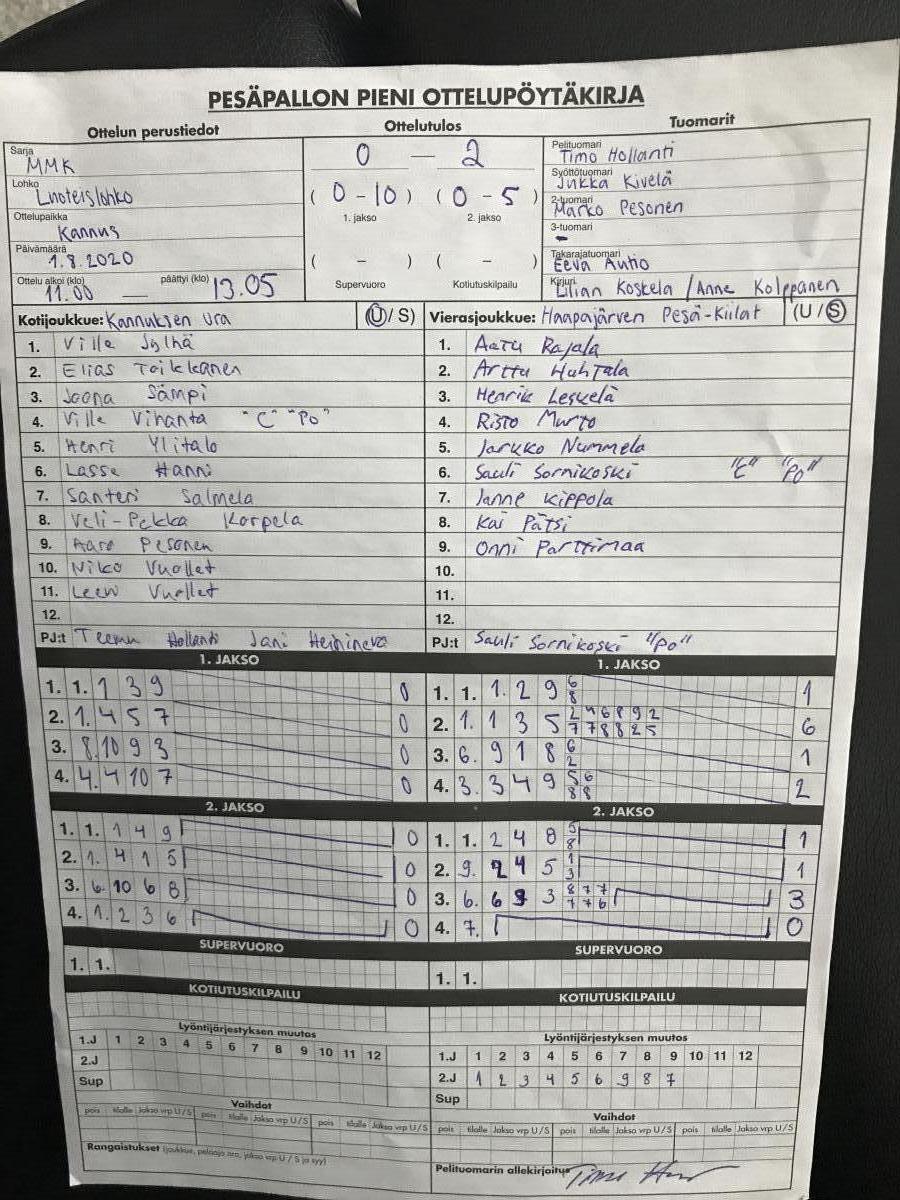 PESÄPALLON PIENI OTTELUPÖYTÄKIRJA
Ottelun perustiedot Ottelutulos Tuomarit
Sarja MMK
Lohko Luoteislohko
Ottelupaikka Kannus
Päivämäärä 1.8.2020
Ottelu alkoi (klo) 11.00 — päättyi (klo) 13.05
0 — 2
( 0 - 10 ) ( 0 - 5 )
1. jakso 2. jakso
( - ) ( - )
Supervuoro Kotiutuskilpailu
Pelituomari Timo Hollanti
Syöttötuomari Jukka Kivelä
2-tuomari Marko Pesonen
3-tuomari -
Takarajatuomari Eeva Autio
Kirjuri Lilian Koskela / Anne Kolppanen
Kotijoukkue: Kannuksen Ura (U / S)
1. Ville Jylhä
2. Elias Toikkanen
3. Joona Sämpi
4. Ville Vihanta "C" "Po"
5. Henri Ylitalo
6. Lasse Hanni
7. Santeri Salmela
8. Veli-Pekka Korpela
9. Aaro Pesonen
10. Niko Vuollet
11. Leevi Vuollet
12.
PJ:t Teemu Hollanti Jani
Vierasjoukkue: Haapajärven Pesä-Kiilat (U / S)
1. Aatu Rajala
2. Arttu Huhtala
3. Henrik Leskelä
4. Risto Murto
5. Jarkko Nummela
6. Sauli Sornikoski "C" "Po"
7. Janne Kippola
8. Kai Pätsi
9. Onni Parttimaa
10.
11.
12.
PJ:t Sauli Sornikoski "Po"
1. JAKSO
1. 1. 1 3 9 0
2. 1. 4 5 7 0
3. 8. 10 9 3 0
4. 4. 4 10 7 0
2. JAKSO
1. 1. 1 4 9 0
2. 1. 4 1 5 0
3. 6. 10 6 8 0
4. 1. 2 3 6 0
SUPERVUORO
1. 1.
KOTIUTUSKILPAILU
Lyöntijärjestyksen muutos
1.J 1 2 3 4 5 6 7 8 9 10 11 12
2.J
Sup
Vaihdot
pois tilalle Jakso vrp U / S pois tilalle Jakso vrp U / S pois tilalle Jakso vrp U / S
Rangaistukset (joukkue, pelaaja nro, jakso vrp U / S ja syy)
1. JAKSO
1. 1. 1. 2 9 6 1
8
2. 1. 1 3 5 2 4 6 8 9 2 6
7 7 8 8 2 5
3. 6. 9 1 8 6 1
2
4. 3. 3 4 9 5 6 2
8 8
2. JAKSO
1. 1. 2 4 8 5 1
8
2. 9. 2 4 5 1 1
3
3. 6. 6 9 3 8 7 7 3
7 7 6
4. 7. 0
SUPERVUORO
1. 1.
KOTIUTUSKILPAILU
Lyöntijärjestyksen muutos
1.J 1 2 3 4 5 6 7 8 9 10 11 12
2.J 1 2 3 4 5 6 9 8 7
Sup
Vaihdot
pois tilalle Jakso vrp U / S pois tilalle Jakso vrp U / S pois tilalle Jakso vrp U / S
Pelituomarin allekirjoitus Timo